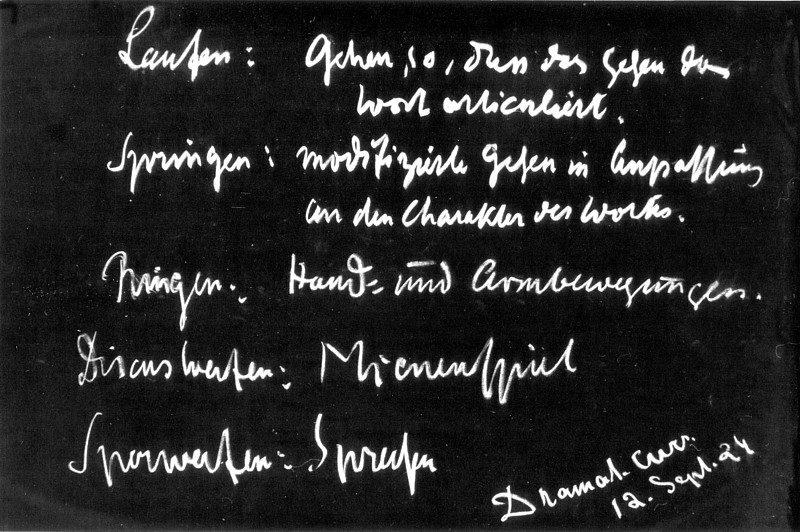 Laufen: Gehen, so, dass das Gehen das
Wort articuliert.
Springen: modifizierte Gehen in Anpassung
an den Charakter des Wortes.
Ringen: Hand- und Armbewegungen.
Discuswerfen: Mienenspiel
Speerwerfen: Sprechen
Dramat. Curs.
12. Sept. 24